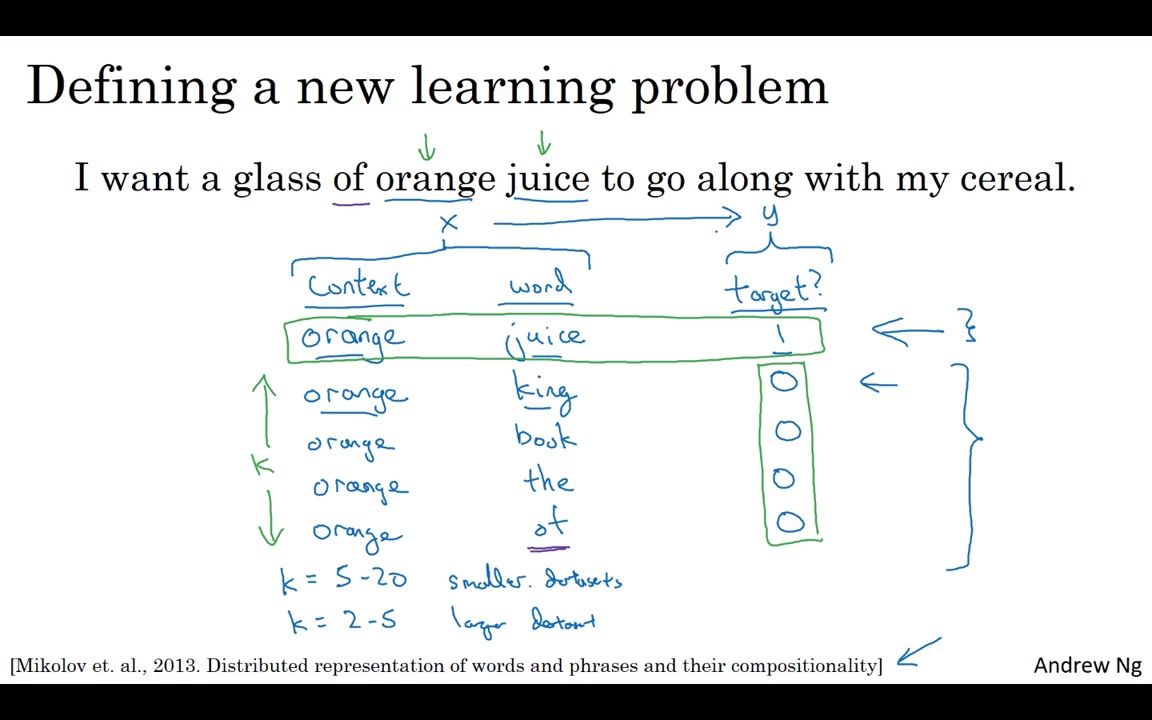 Defining a new learning problem
I want a glass of orange juice to go along with my cereal.
x y
context word target?
orange juice 1
orange king 0
orange book 0
k
orange the 0
orange of 0
k = 5-20 smaller datasets
k = 2-5 larger dataset
[Mikolov et. al., 2013. Distributed representation of words and phrases and their compositionality]
Andrew Ng